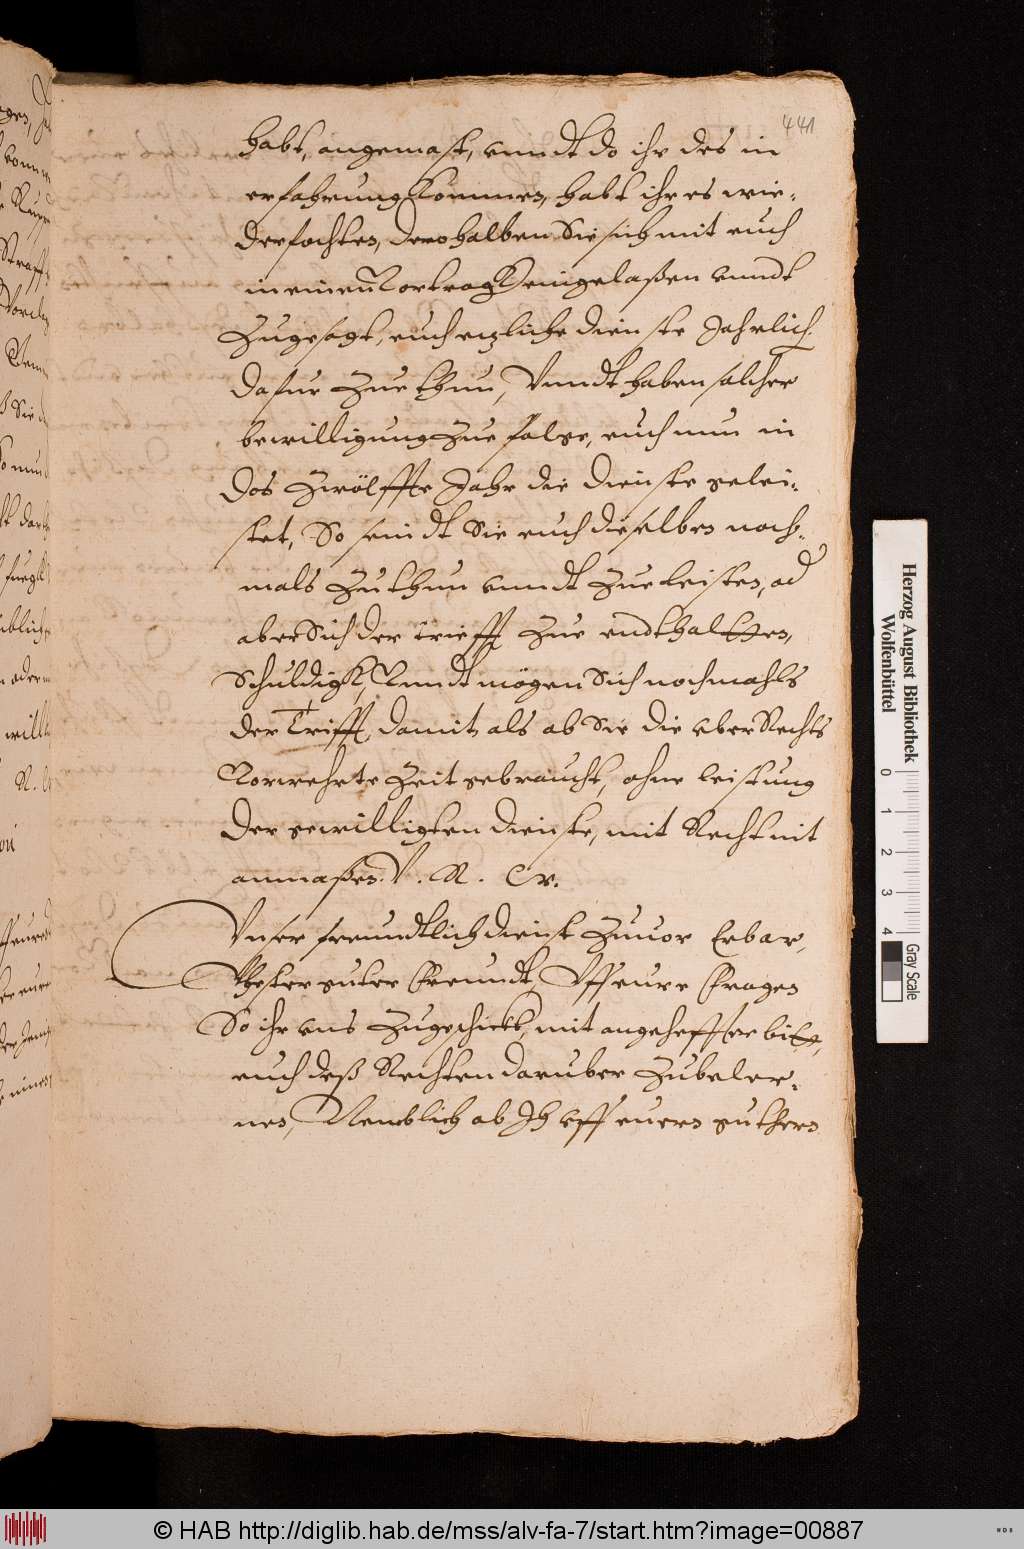 441
habt, angemast, vnndt do ihr des in
erfahrung kommen, habt ihr es wie-
derfochten, derohalben Sie sich mit euch
in einen Vortrag eingelaßen vnndt
Zugesagt, euch etzliche dienste Jahrlich
dafur Zue thun, Vnndt haben solcher
bewilligung Zue folge, euch nun in
das Zwölffte Jahr die dienste gelei-
stet, So seindt Sie euch dieselben noch-
mals Zu thun vnndt Zue leisten, od
aber Sich der trifft Zue endthaltten,
Schuldigk, Vnndt mögen Sich nochmahls
der Trifft, damit als ob Sie die vber Rechts
Vorwehrte Zeit gebraucht, ohne leistung
der gewilligten dienste, mit Recht nit
anmaßen. V. R. W.
Vnser freundtlich dienst Zuuor Erbar,
Vhester guter Freundt, Vff eure Fragen
So ihr vns Zugeschickt, mit angeheffter bitt,
euch deß Rechten daruber Zubeler-
nen, Nemblich ob Ih vff euers guthers
Herzog August Bibliothek
Wolfenbüttel
0 1 2 3 4
Gray Scale
© HAB http://diglib.hab.de/mss/alv-fa-7/start.htm?image=00887